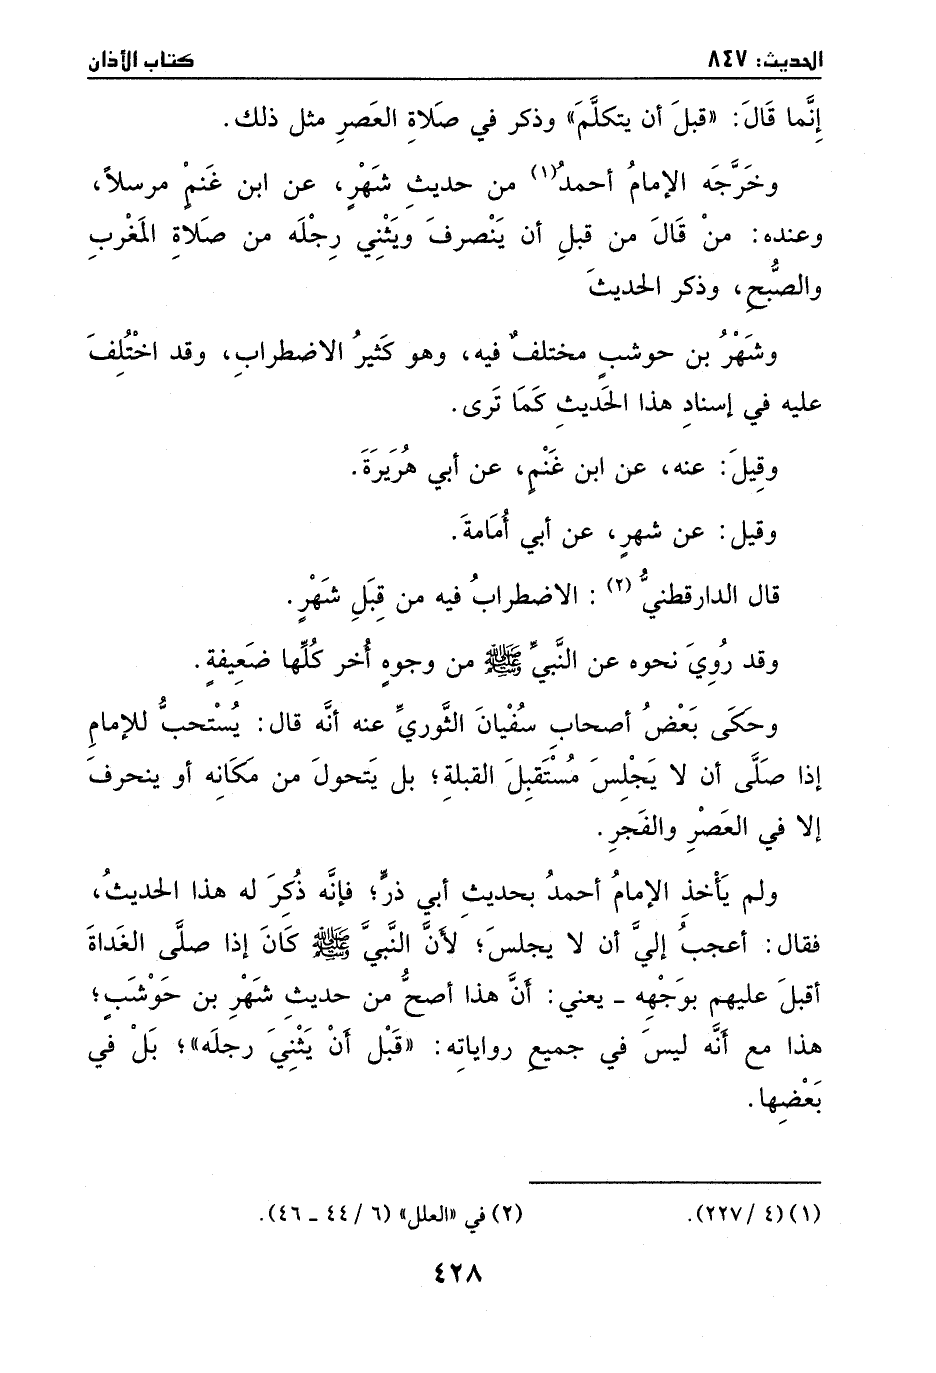 الحديث: ٨٤٧ كتاب الأذان
إِنَّما قَالَ: «قبلَ أن يتكلَّمَ» وذكر في صَلاةِ العَصرِ مثل ذلك.
وخَرَّجَه الإمامُ أحمدُ(١) من حديثِ شَهْرٍ، عن ابن غَنمٍ مرسلاً،
وعنده: منْ قَالَ من قبلِ أن يَنْصرفَ ويَثْنِي رِجْلَه من صَلاةِ المَغْربِ
والصُّبحِ، وذكر الحديثَ
وشَهْرُ بن حوشبٍ مختلفٌ فيه، وهو كَثيرُ الاضطرابِ، وقد اخْتُلِفَ
عليه في إسنادِ هذا الحَديثِ كَمَا تَرى.
وقِيلَ: عنه، عن ابن غَنْمٍ، عن أبي هُرَيرَةَ.
وقيل: عن شهرٍ، عن أبي أُمَامةَ.
قال الدارقطنيُّ(٢) : الاضطرابُ فيه من قِبَلِ شَهْرٍ.
وقد رُوِيَ نحوه عن النَّبيِّ ﷺ من وجوهٍ أُخر كُلِّها ضَعِيفةٍ.
وحَكَى بَعْضُ أصحابِ سفْيانَ الثَّوريِّ عنه أنَّه قال: يُسْتحبُّ للإمامِ
إذا صَلَّى أن لا يَجْلِسَ مُسْتَقبِلَ القبلةِ؛ بل يَتحولَ من مَكَانِه أو ينحرفَ
إلا في العَصْرِ والفَجرِ.
ولم يَأْخذِ الإمامُ أحمدُ بحديثِ أبي ذرٍّ؛ فإنَّه ذُكِرَ له هذا الحديثُ،
فقال: أعجبُ إليَّ أن لا يجلسَ؛ لأنَّ النَّبيَّ ﷺ كَانَ إذا صلَّى الغَداةَ
أقبلَ عليهم بوَجْهِه ـ يعني: أنَّ هذا أصحُّ من حديثِ شَهْرِ بن حَوْشَبٍ؛
هذا مع أنَّه ليسَ في جميعِ رواياتِه: «قَبْل أنْ يَثْنِيَ رجلَه»؛ بَلْ في
بَعْضِها.
(١) (٤ / ٢٢٧). (٢) في «العلل» (٦ / ٤٤ ـ ٤٦).
٤٢٨